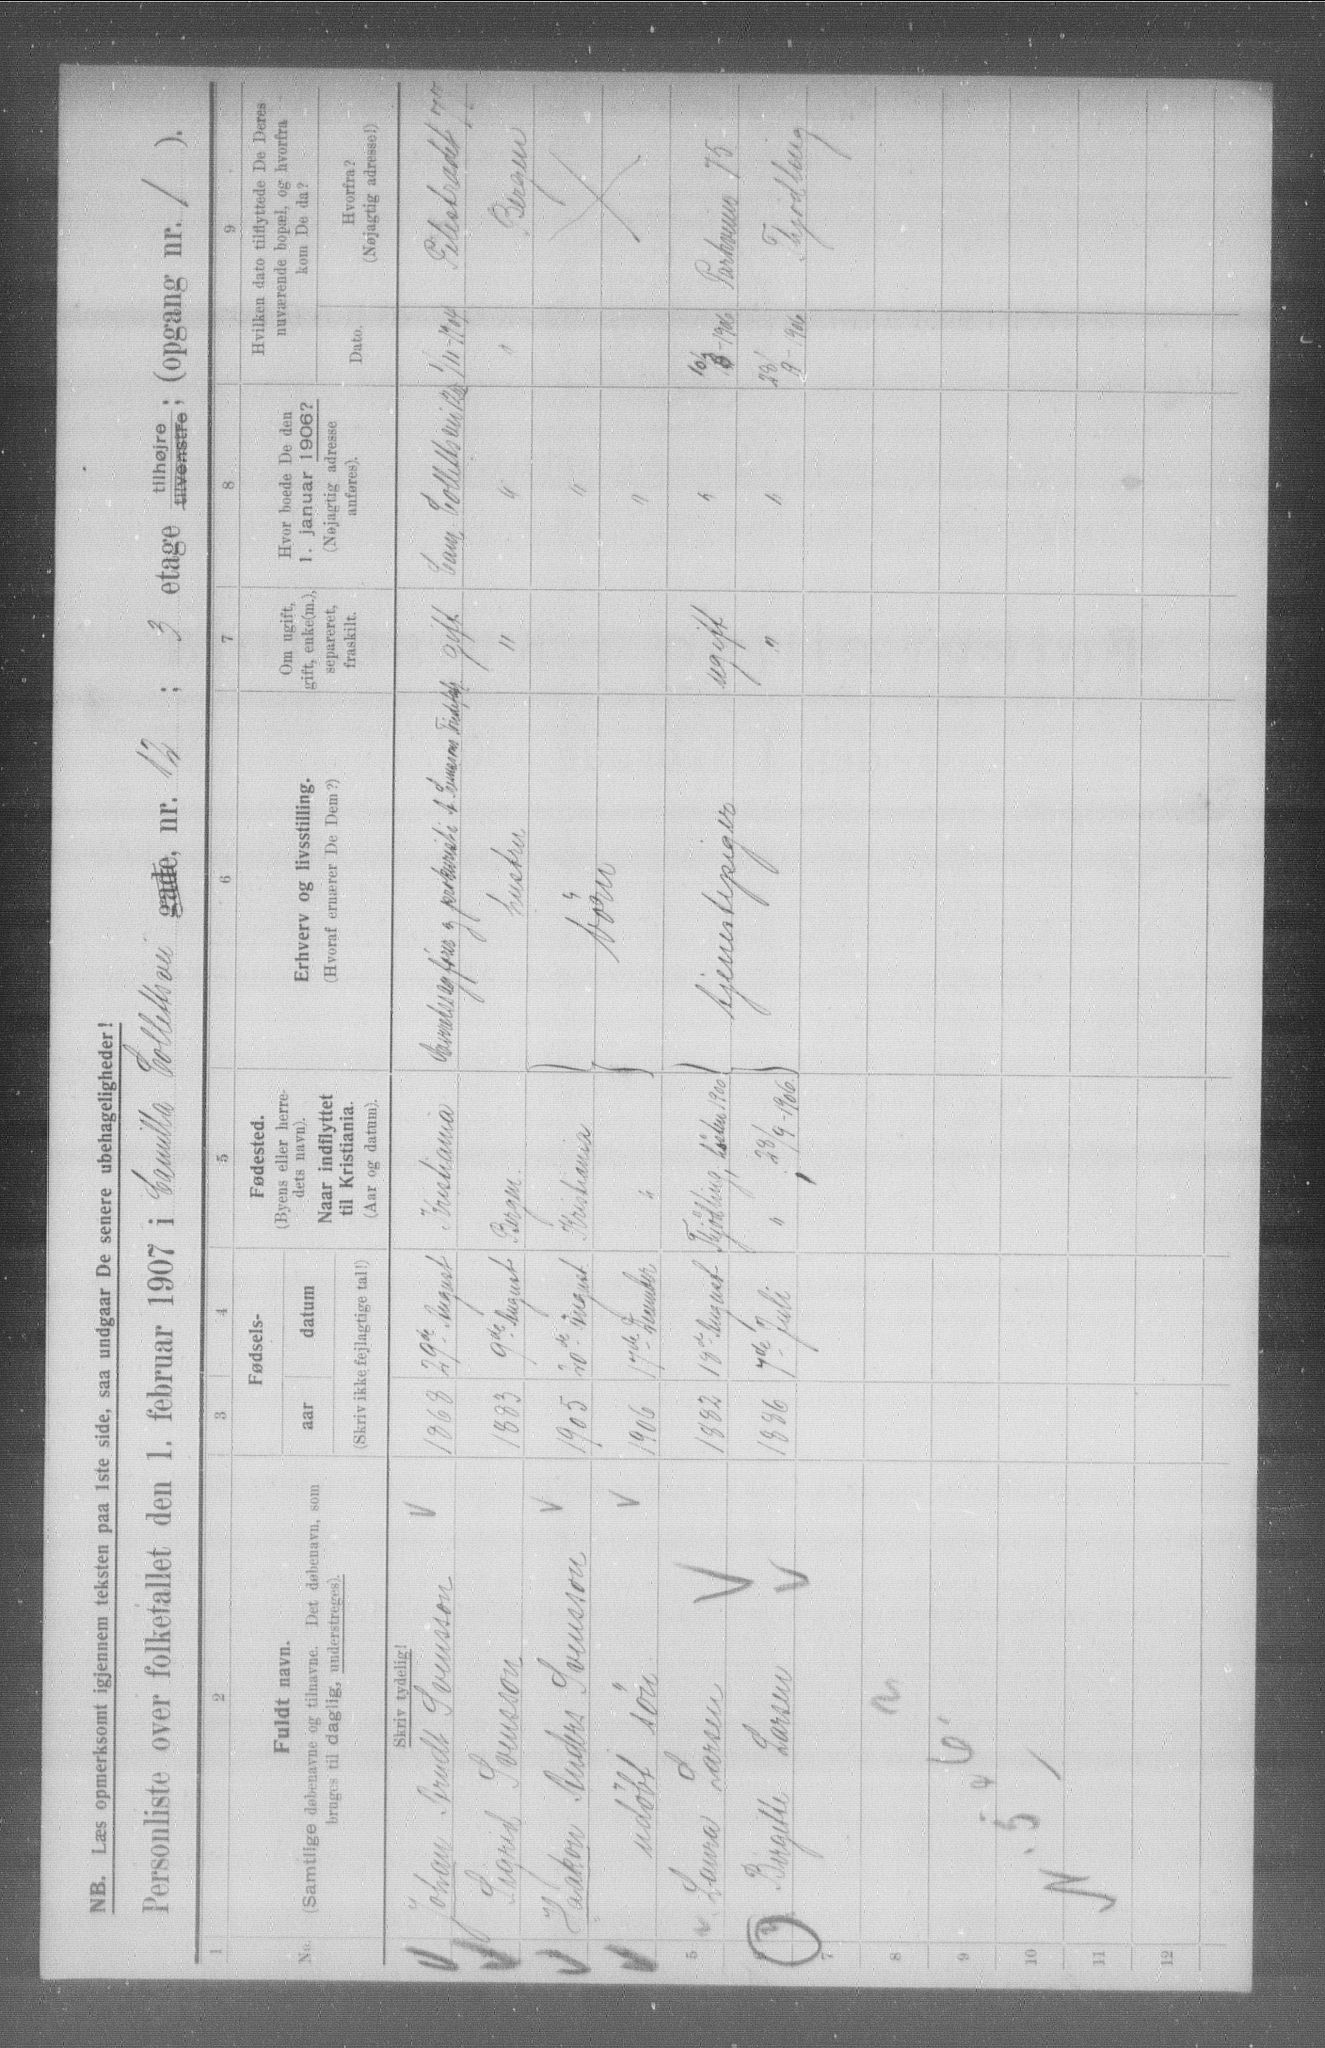 NB. Læs opmerksomt igjennem teksten paa 1ste side, saa undgaar De senere ubehageligheder!
Personliste over folketallet den 1. februar 1907 i Camilla Collettsvei gade, nr. 12 ; 3 etage tilhøjre tilvenstre ; (opgang nr. 1 ).
1 2 3 4 5 6 7 8 9
No.
Fuldt navn.
(Samtlige døbenavne og tilnavne. Det døbenavn, som
bruges til daglig, understreges).
Skriv tydelig!
Fødsels-
aar datum
(Skriv ikke fejlagtige tal!)
Fødested.
(Byens eller herre-
dets navn).
Naar indflyttet
til Kristiania.
(Aar og datum).
Erhverv og livsstilling.
(Hvoraf ernærer De Dem?)
Om ugift,
gift, enke(m.),
separeret,
fraskilt.
Hvor boede De den
1. januar 1906?
(Nøjagtig adresse
anføres).
Hvilken dato tilflyttede De Deres
nuværende bopæl, og hvorfra
kom De da?
Dato.
Hvorfra?
(Nøjagtig adresse!)
Johan Arndt Svensson V 1868 29de August Kristiania gift Cam. Collettsvei 1/11-1904 Pilestrædet
Sigrid Svensson 1883 9de August Bergen hustru " " " Bergen
Haakon Anders Svensson V 1905 20de August Kristiania "
udöbt sön V 1906 17de " Börn "
5 Laura Larsen V 1882 18de August 1900 tjenestepiger ugift " 1906 Parkveien 75
Birgitte Larsen V 1886 7de Juli " 28/9-1906 " " 28/9-1906
7
8
9
10
11
12
N. 5